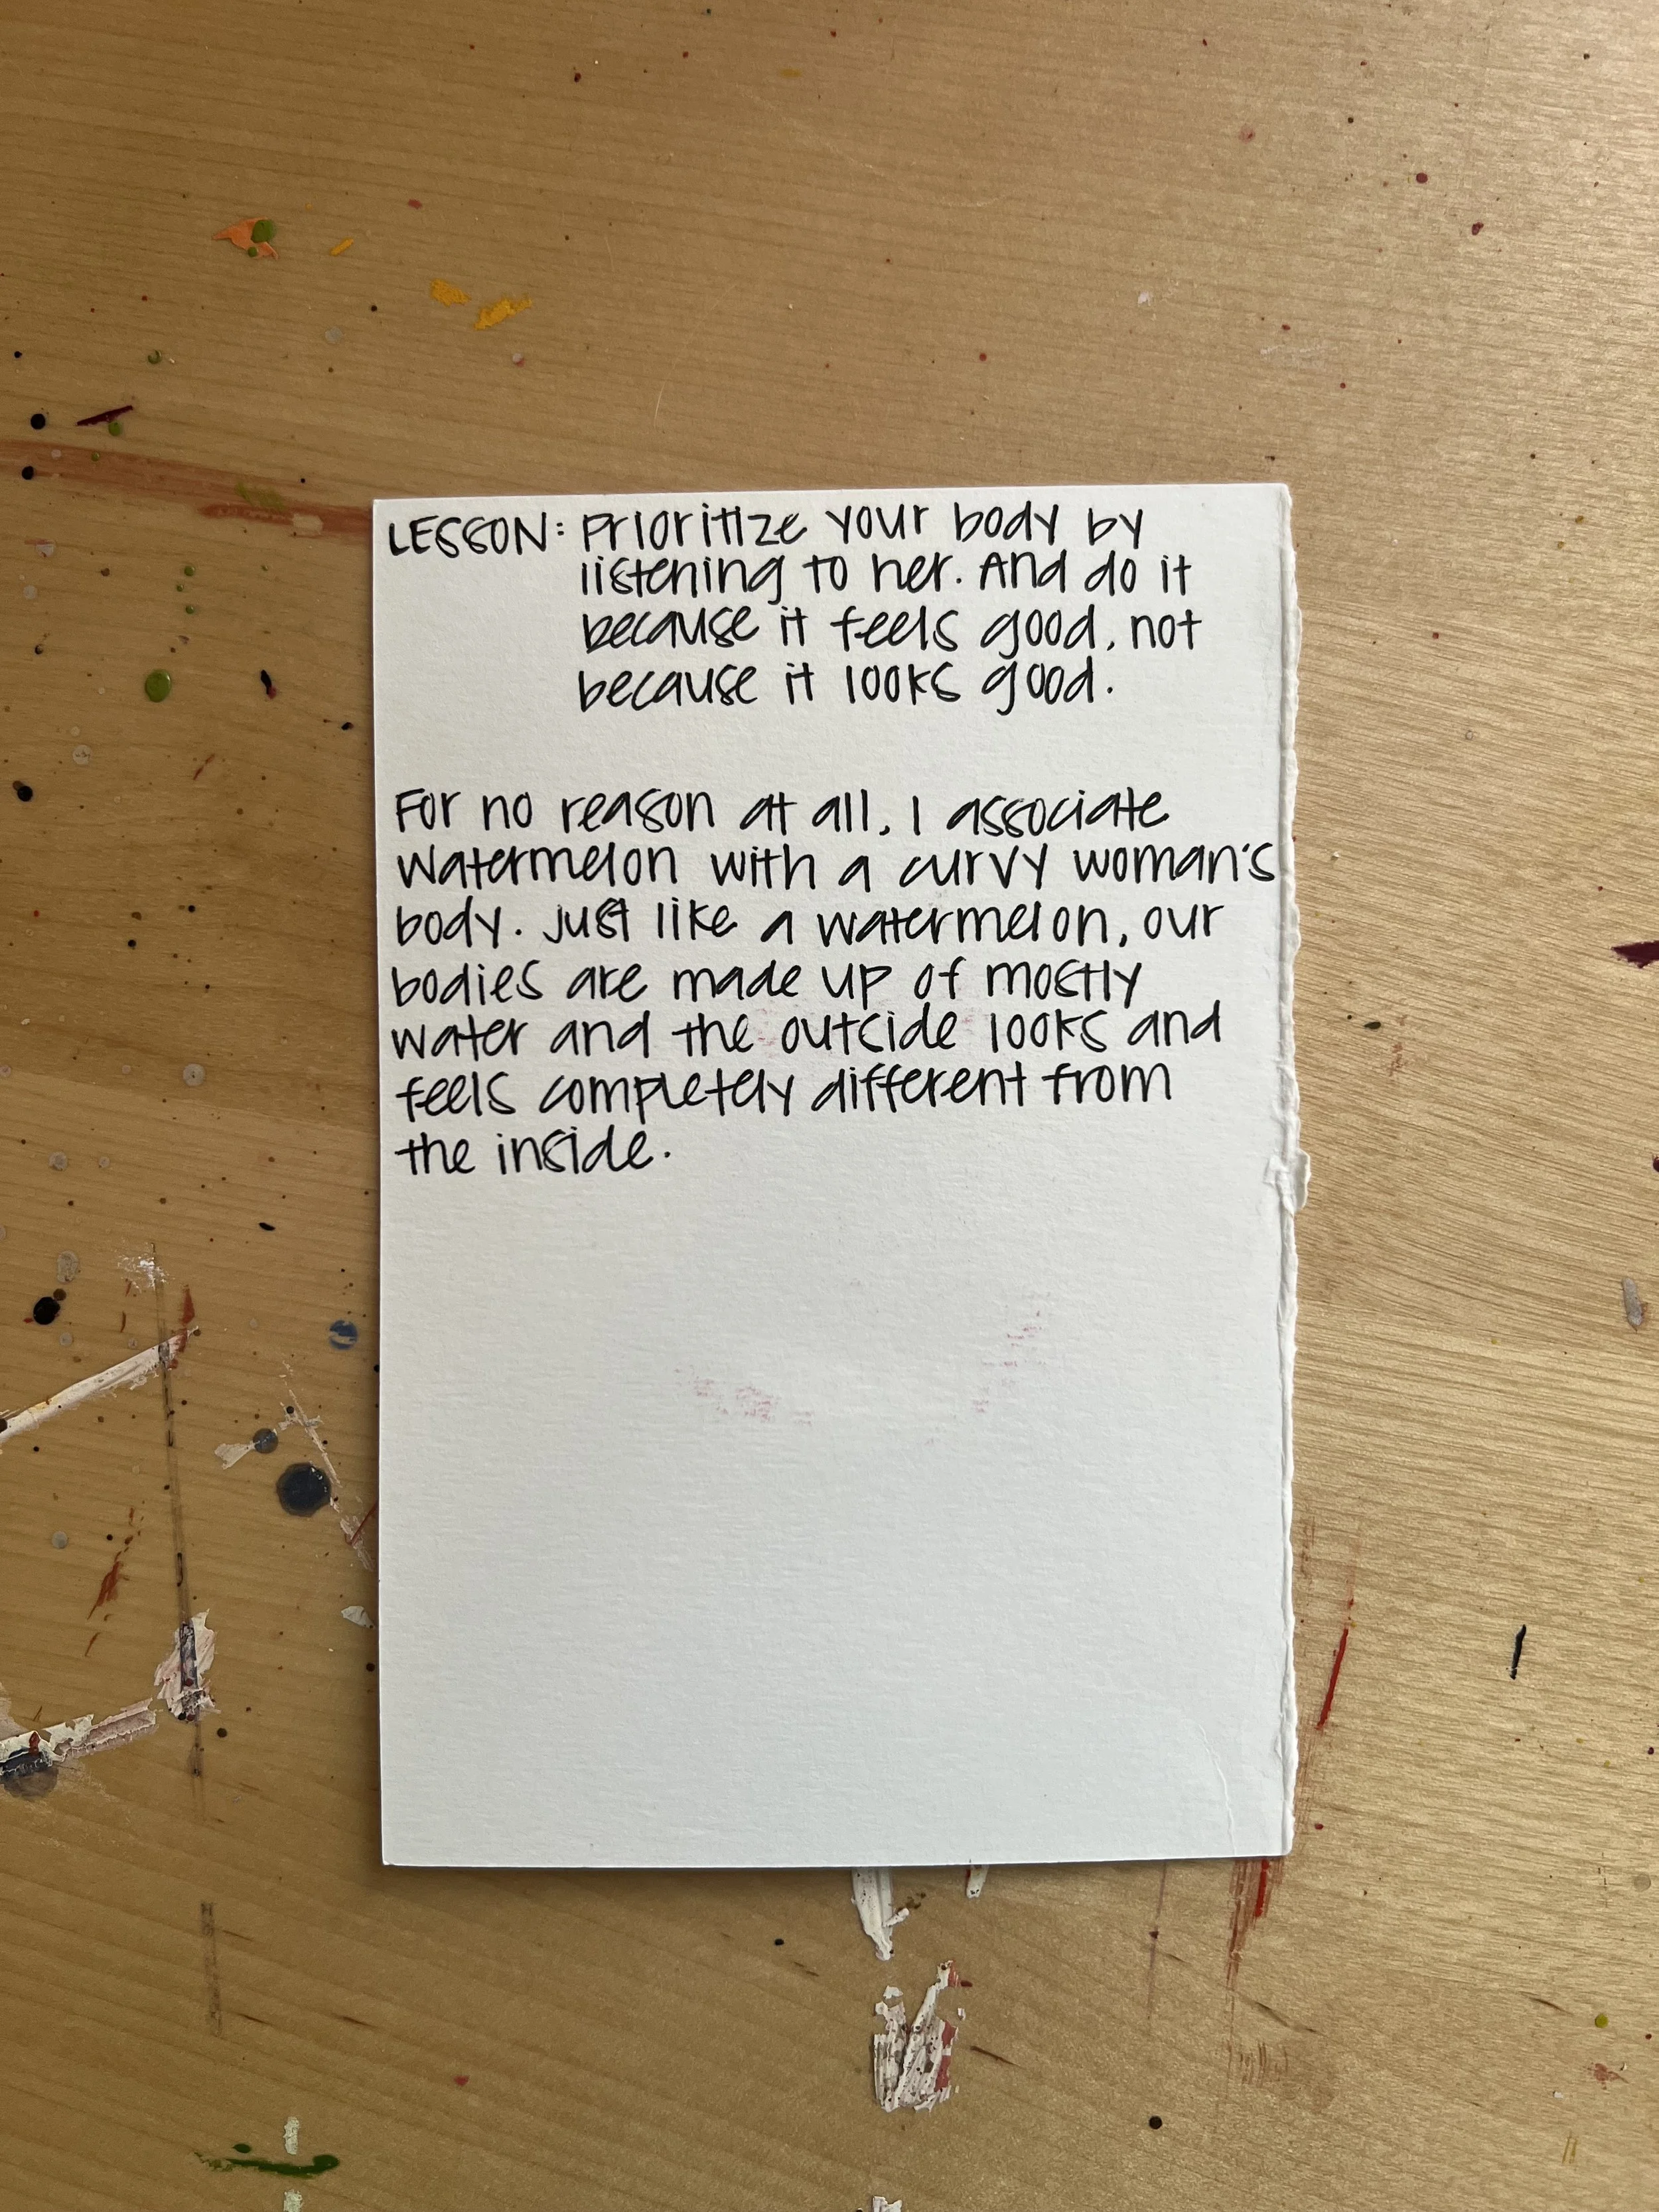 LESSON: Prioritize your body by
listening to her. And do it
because it feels good, not
because it looks good.
For no reason at all, I associate
watermelon with a curvy woman's
body. Just like a watermelon, our
bodies are made up of mostly
water and the outside looks and
feels completely different from
the inside.